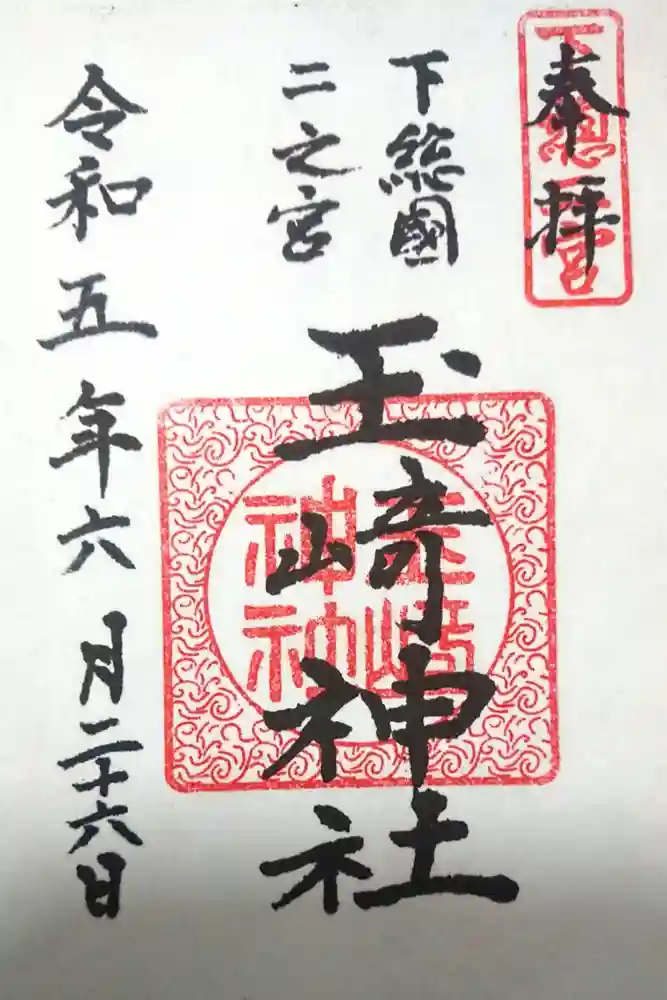 奉拝
下総二宮
下総國
二之宮
玉﨑神社
玉崎神社
令和五年六月二十六日